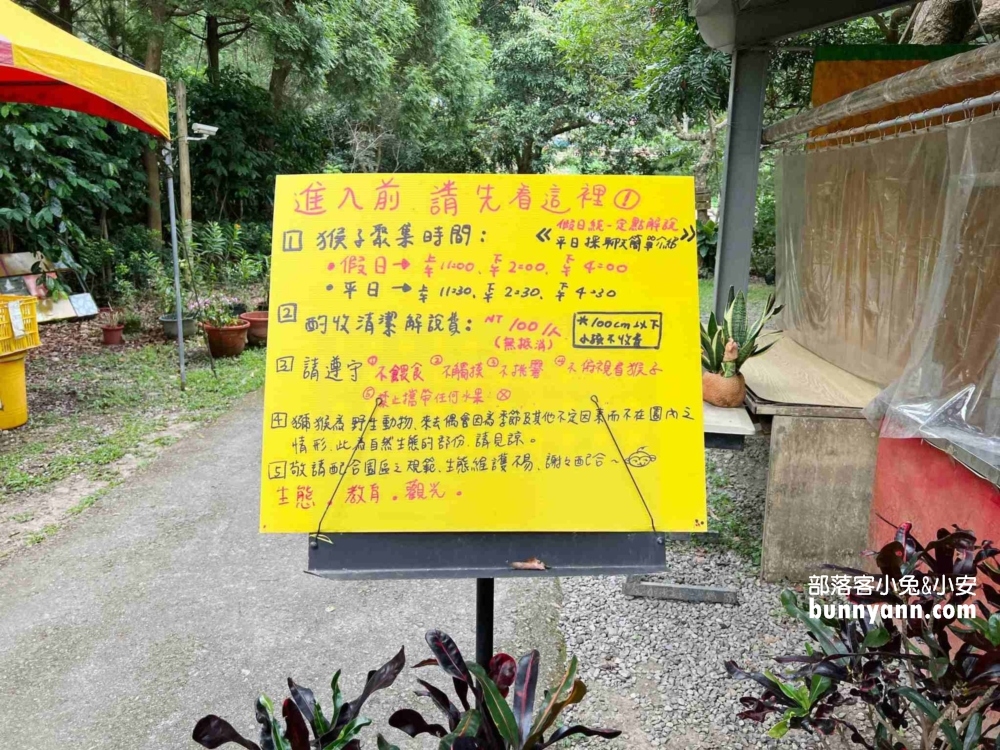 進入前 請先看這裡①
1 猴子聚集時間:
《假日統一定點解說
平日採聊天簡單介紹》
• 假日→ 上午11:00、下午2:00、下午4:00
• 平日→ 上午11:30、下午2:30、下午4:30
2 酌收清潔解說費: NT 100/人
(無抵消)
*100cm以下
小孩不收費
3 請遵守 ①不餵食 ②不觸摸 ③不挑釁 ④不俯視看猴子
⑤禁止攜帶任何水果
4 獼猴為野生動物、來去偶會因為季節及其他不定因素而不在園內之
情形,此為自然生態的部份,請見諒。
5 敬請配合園區之規範、生態維護不易、謝々配合~
生態.教育.觀光.
部落客小兔&小安
bunnyann.com